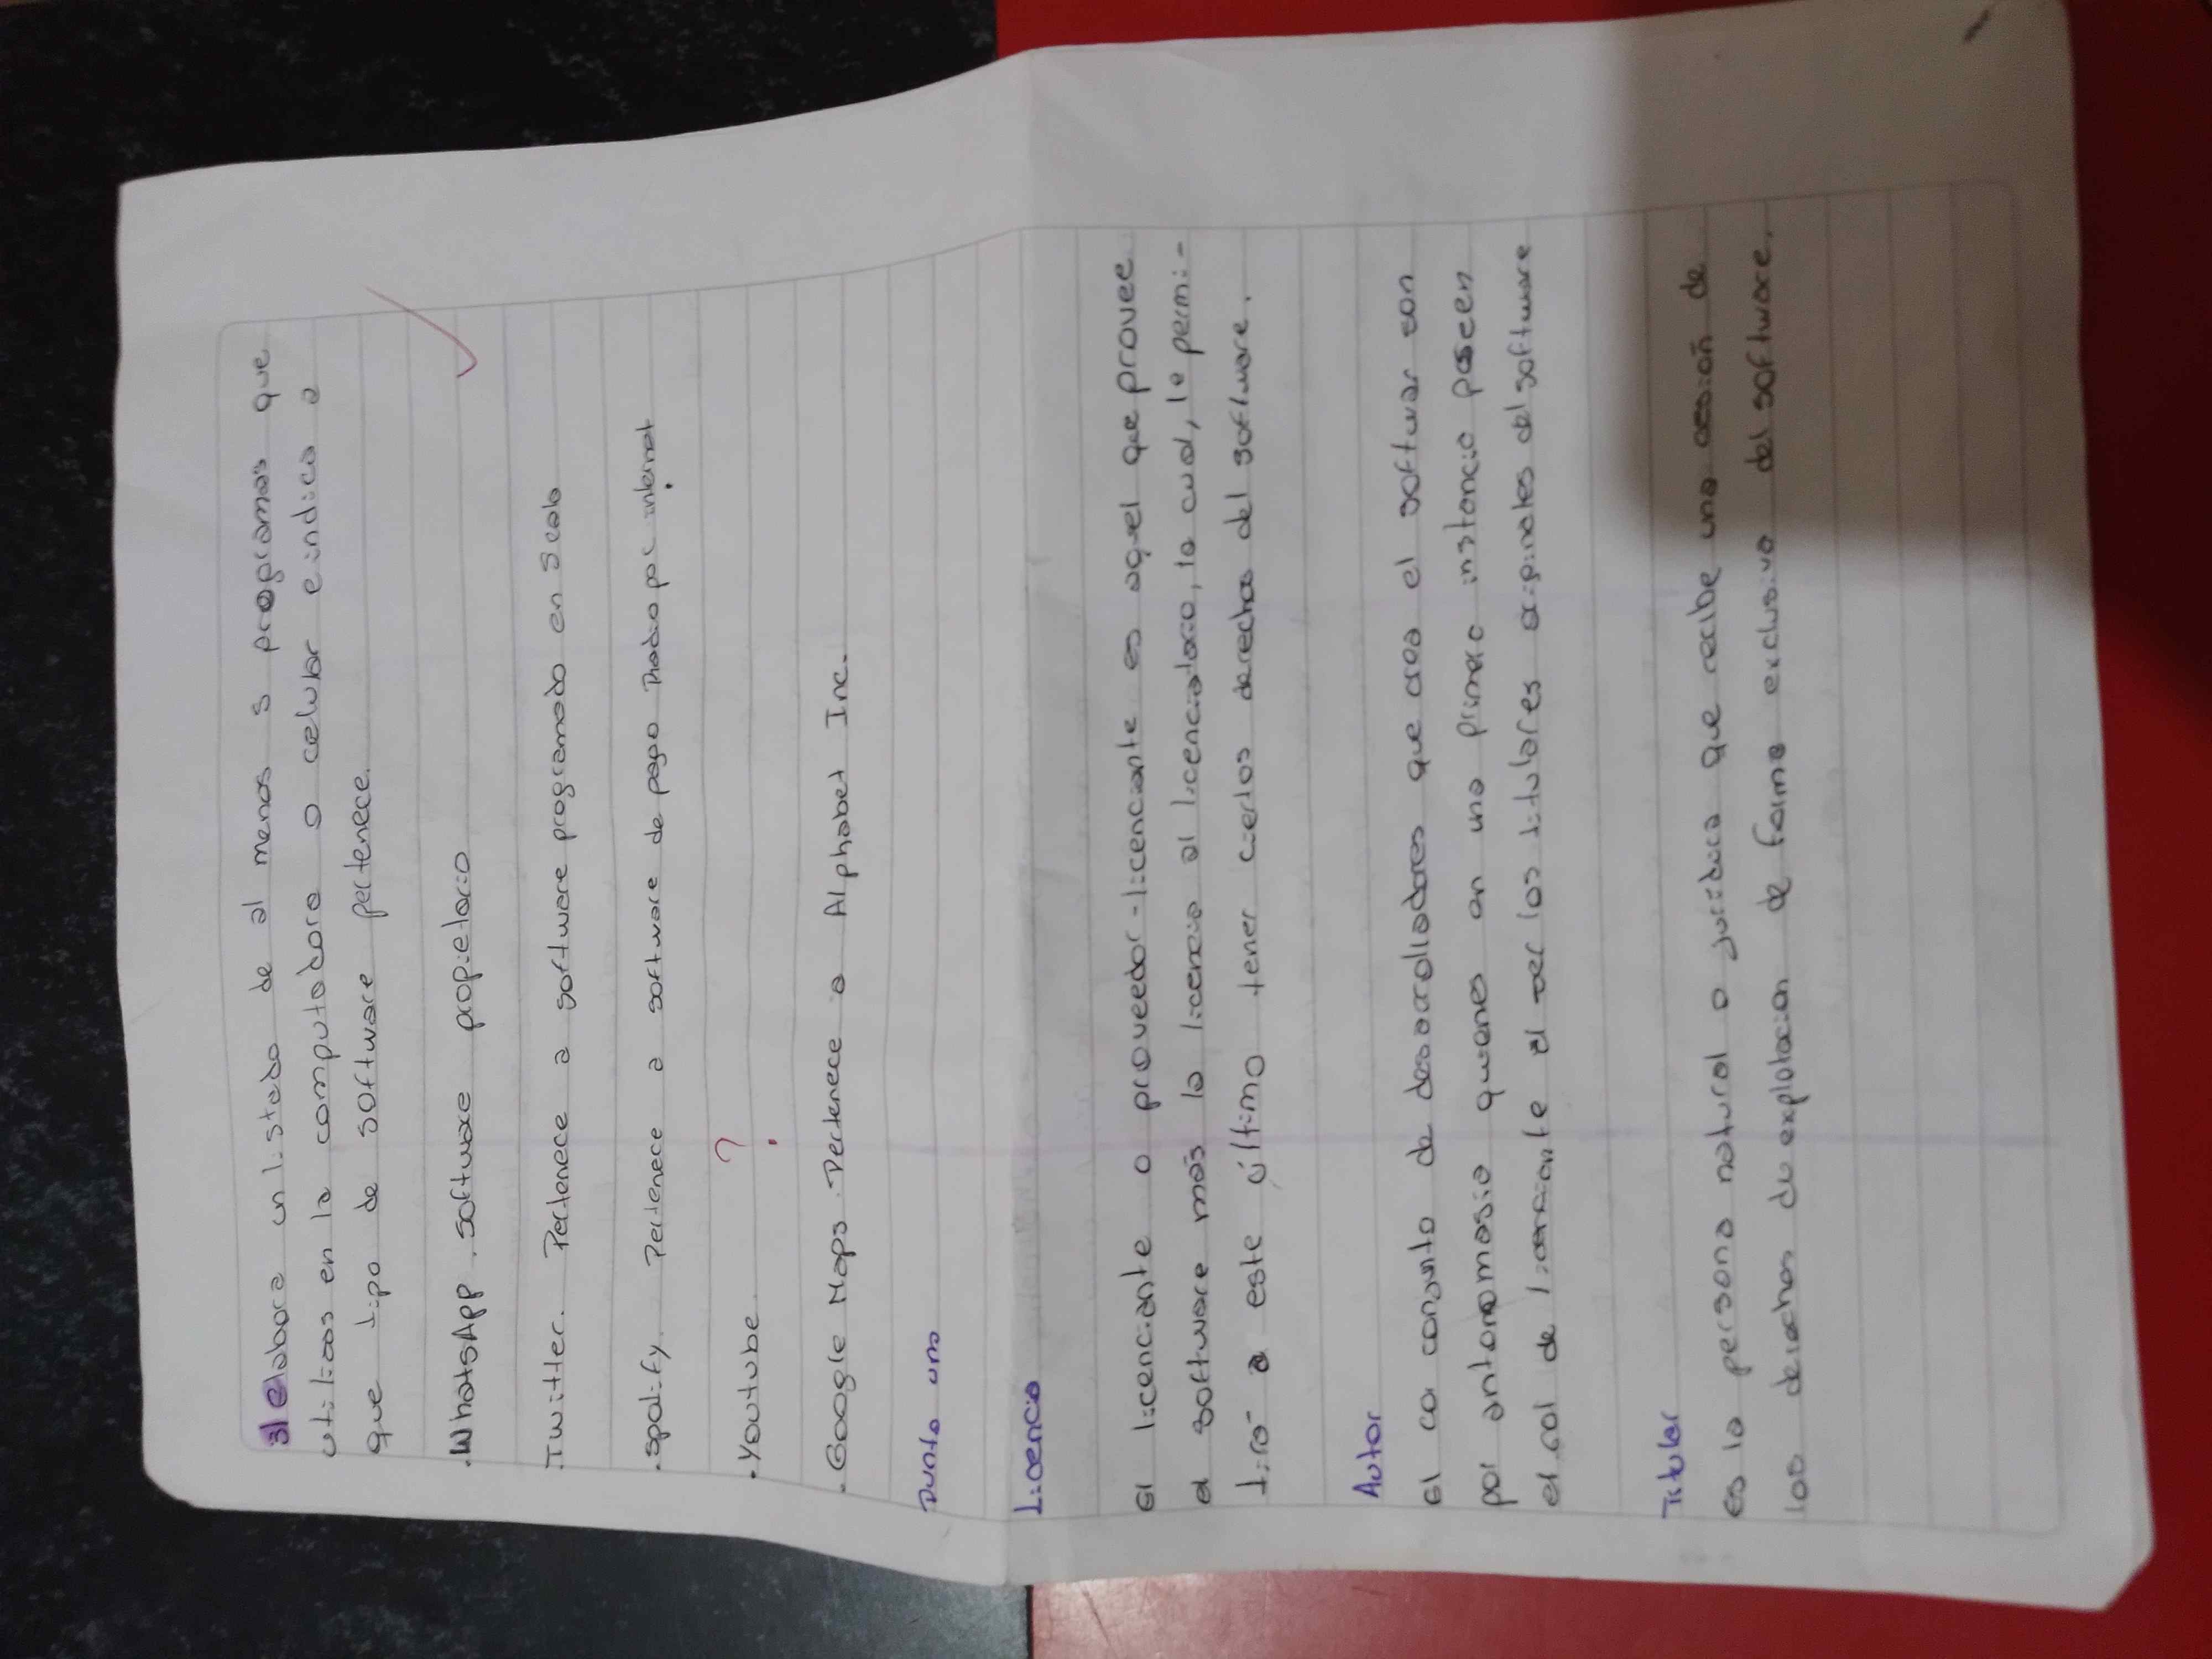 3) elabora un listado de al menos 5 programas que
utilizas en la computadora o celular e indica a
que tipo de software pertenece.
.WhatsApp. software propietario
.Twitter. Pertenece a software programado en Scala
.spotify. Pertenece a software de pago Radio por internet.
.Youtube. ?
.Google Maps. Pertenece a Alphabet Inc.
Punto uno
Licencia
El licenciante o proveedor-licenciante es aquel que provee
el software más la licencia al licenciatario, la cual, le permi-
tirá a este último tener ciertos derechos del software.
Autor
El co conjunto de desarrolladores que crea el softwar son
por antonomasia quienes an una primera instancia poseen
el rol de licenciante al ser los titulares originales del software
Titular
es la persona natural o jurídica que recibe una cesión de
los derechos de explotación de forma exclusiva del software.